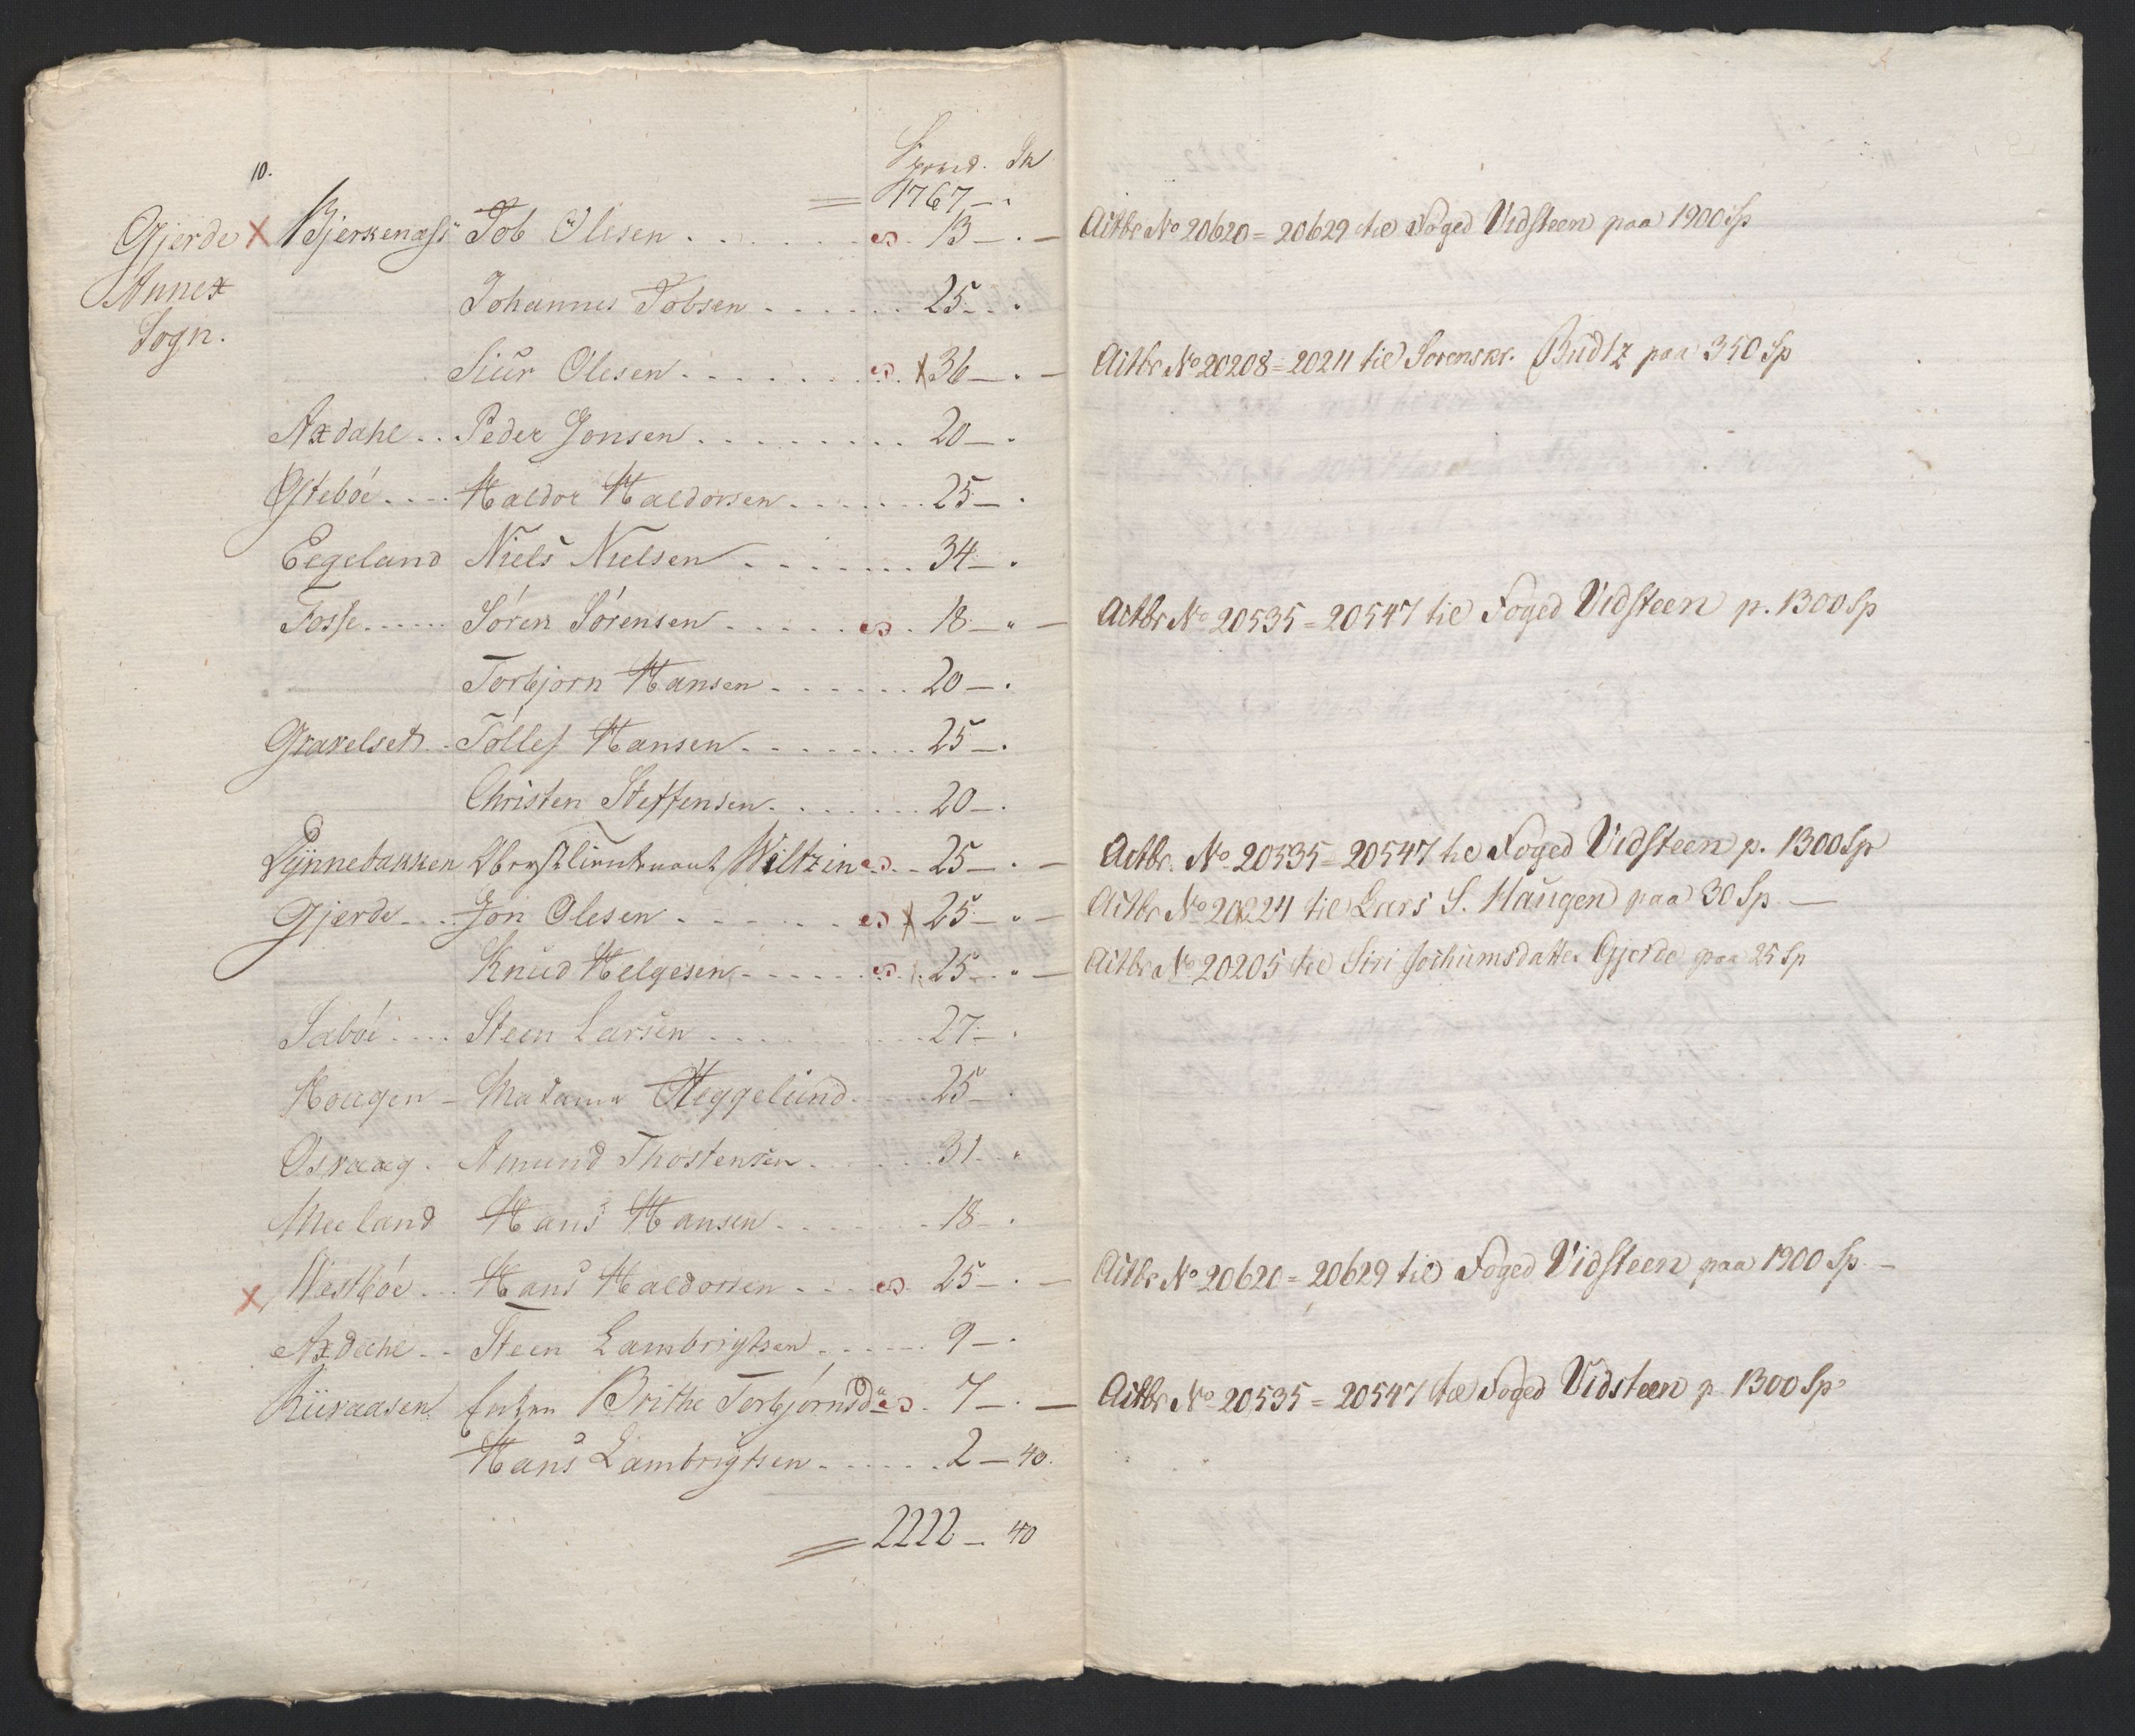 10.
Spud. Sk
= 1767 — .
Gjerde Annex Sogn.
X Bjerkenæss Tob Olesen . . . . . . 13 — . — Actbr No 20620 = 20629 til Foged Vidsteen paa 1900 Sp
Johannes Tobsen . . . . . . 25 — .
Siur Olesen . . . . . . x 36 — . — Actbr No 20208 = 20211 til Sorenskr. Budtz paa 350 Sp
Axdahl . . Peder Jonsen . . . . . . 20 — .
Østebøe . . . . Haldor Haldorsen . . . . . . 25 — .
Eegeland Niels Nielsen . . . . . . 34 — .
Fosse . . . . . Sören Sörensen . . . . . . 18 — . — Actbr No 20535 = 20547 til Foged Vidsteen p. 1300 Sp
Torbjorn Hansen . . . . . . 20 — .
Gravelset . . Tøllef Hansen . . . . . . 25 — .
Christen Steffensen . . . . . . 20 — .
Dynnebakken Obrystlieutnant Wiltzin . . 25 — . — Actbr. No 20535 = 20547 til Foged Vidsteen p. 1300 Sp
Gjærde . . . Jon Olesen . . . . . . x 25 — . — Actbr No 20224 til Lars S. Haugen paa 30 Sp. —
Knud Helgesen . . . . . . 25 — . — Actbr No 20205 til Siri Jochumsdatter Gjerde paa 25 Sp
Sabøe . . . . Steen Larsen . . . . . . 27 — .
Haagen — Madame Heggelund . . . . 25 — .
Osvaag . Amund Thostensen . . . . . . 31 . .
Meeland Hans Hansen . . . . . . 18 — .
X Westbøe . . . Hans Haldorsen . . . . 25 — . — Actbr No 20620 = 20629 til Foged Vidsteen paa 1900 Sp. —
Axdahl . . Steen Lambrigtsen . . . . . . 9 — .
Riiraasen Enken Brithe Torbjørnsd . 7 — . — Actbr No 20535 = 20547 til Foged Vidsteen p 1300 Sp
Hans Lambrigtsen . . . . . . 2 — 40.
= 2222 — 40